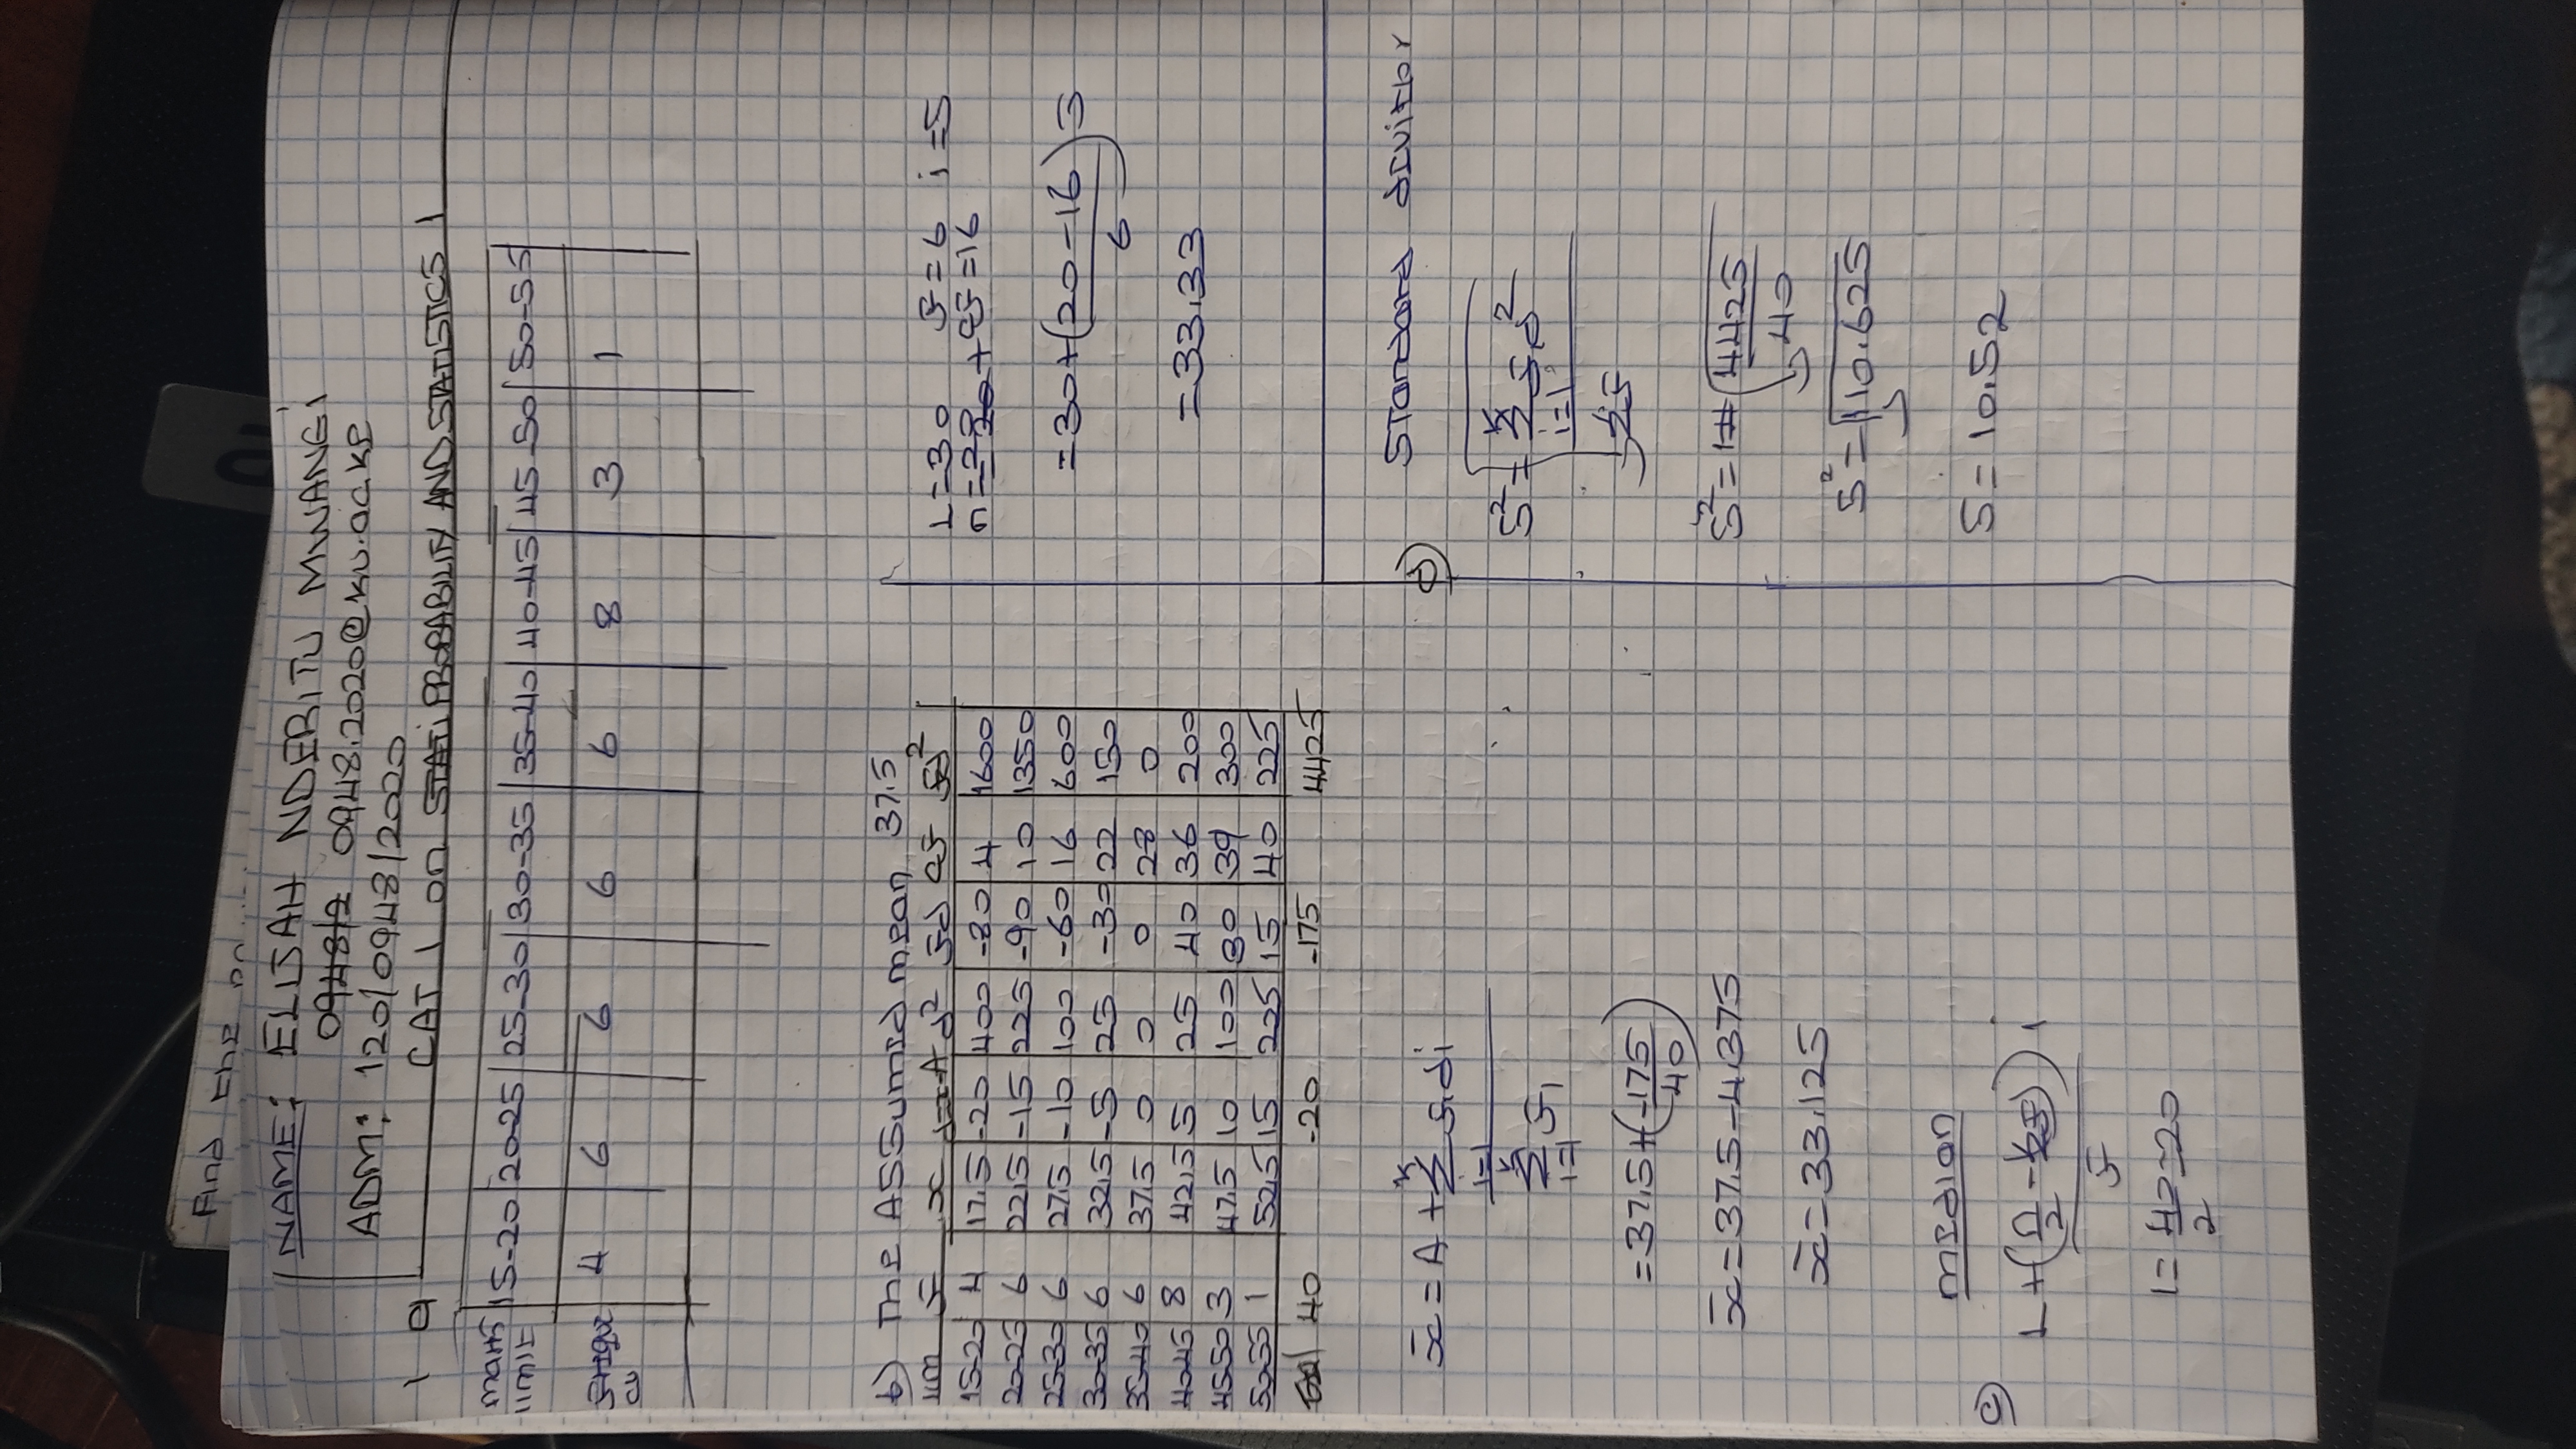 Find the
NAME: ELIJAH NDERITU MWANGi
0948/2 0948.2020@ku.ac.ke
ADM: 120/0948/2020
1 a CAT 1 on STATi PROBABILITY AND STATISTICS 1
marks limit 15-20 20-25 25-30 30-35 35-40 40-45 45-50 50-55
4 6 6 6 6 8 3 1
b) The Assumed mean 37.5
lim f x d=x-A d² fd cf fd²
15-20 4 17.5 -20 400 -80 4 1600
20-25 6 22.5 -15 225 -90 10 1350
25-30 6 27.5 -10 100 -60 16 600
30-35 6 32.5 -5 25 -30 22 150
35-40 6 37.5 0 0 0 28 0
40-45 8 42.5 5 25 40 36 200
45-50 3 47.5 10 100 30 39 300
50-55 1 52.5 15 225 15 40 225
40 -20 -175 4425
x̄ = A + Σ fidi
i=1
Σ fi
i=1
= 37.5 + (-175
40)
x̄ = 37.5 - 4.375
x̄ = 33.125
median
c)
L + (n/2 - cf) i
f
1 = 40 = 20
2
L = 30 f = 6 i = 5
cf = 16
= 30 + (20 - 16) 5
6
= 33.33
d) Standard
S² = √ Σ fd²
i=1
Σf
S² = √ 4425
40
S² = √110.625
S = 10.52